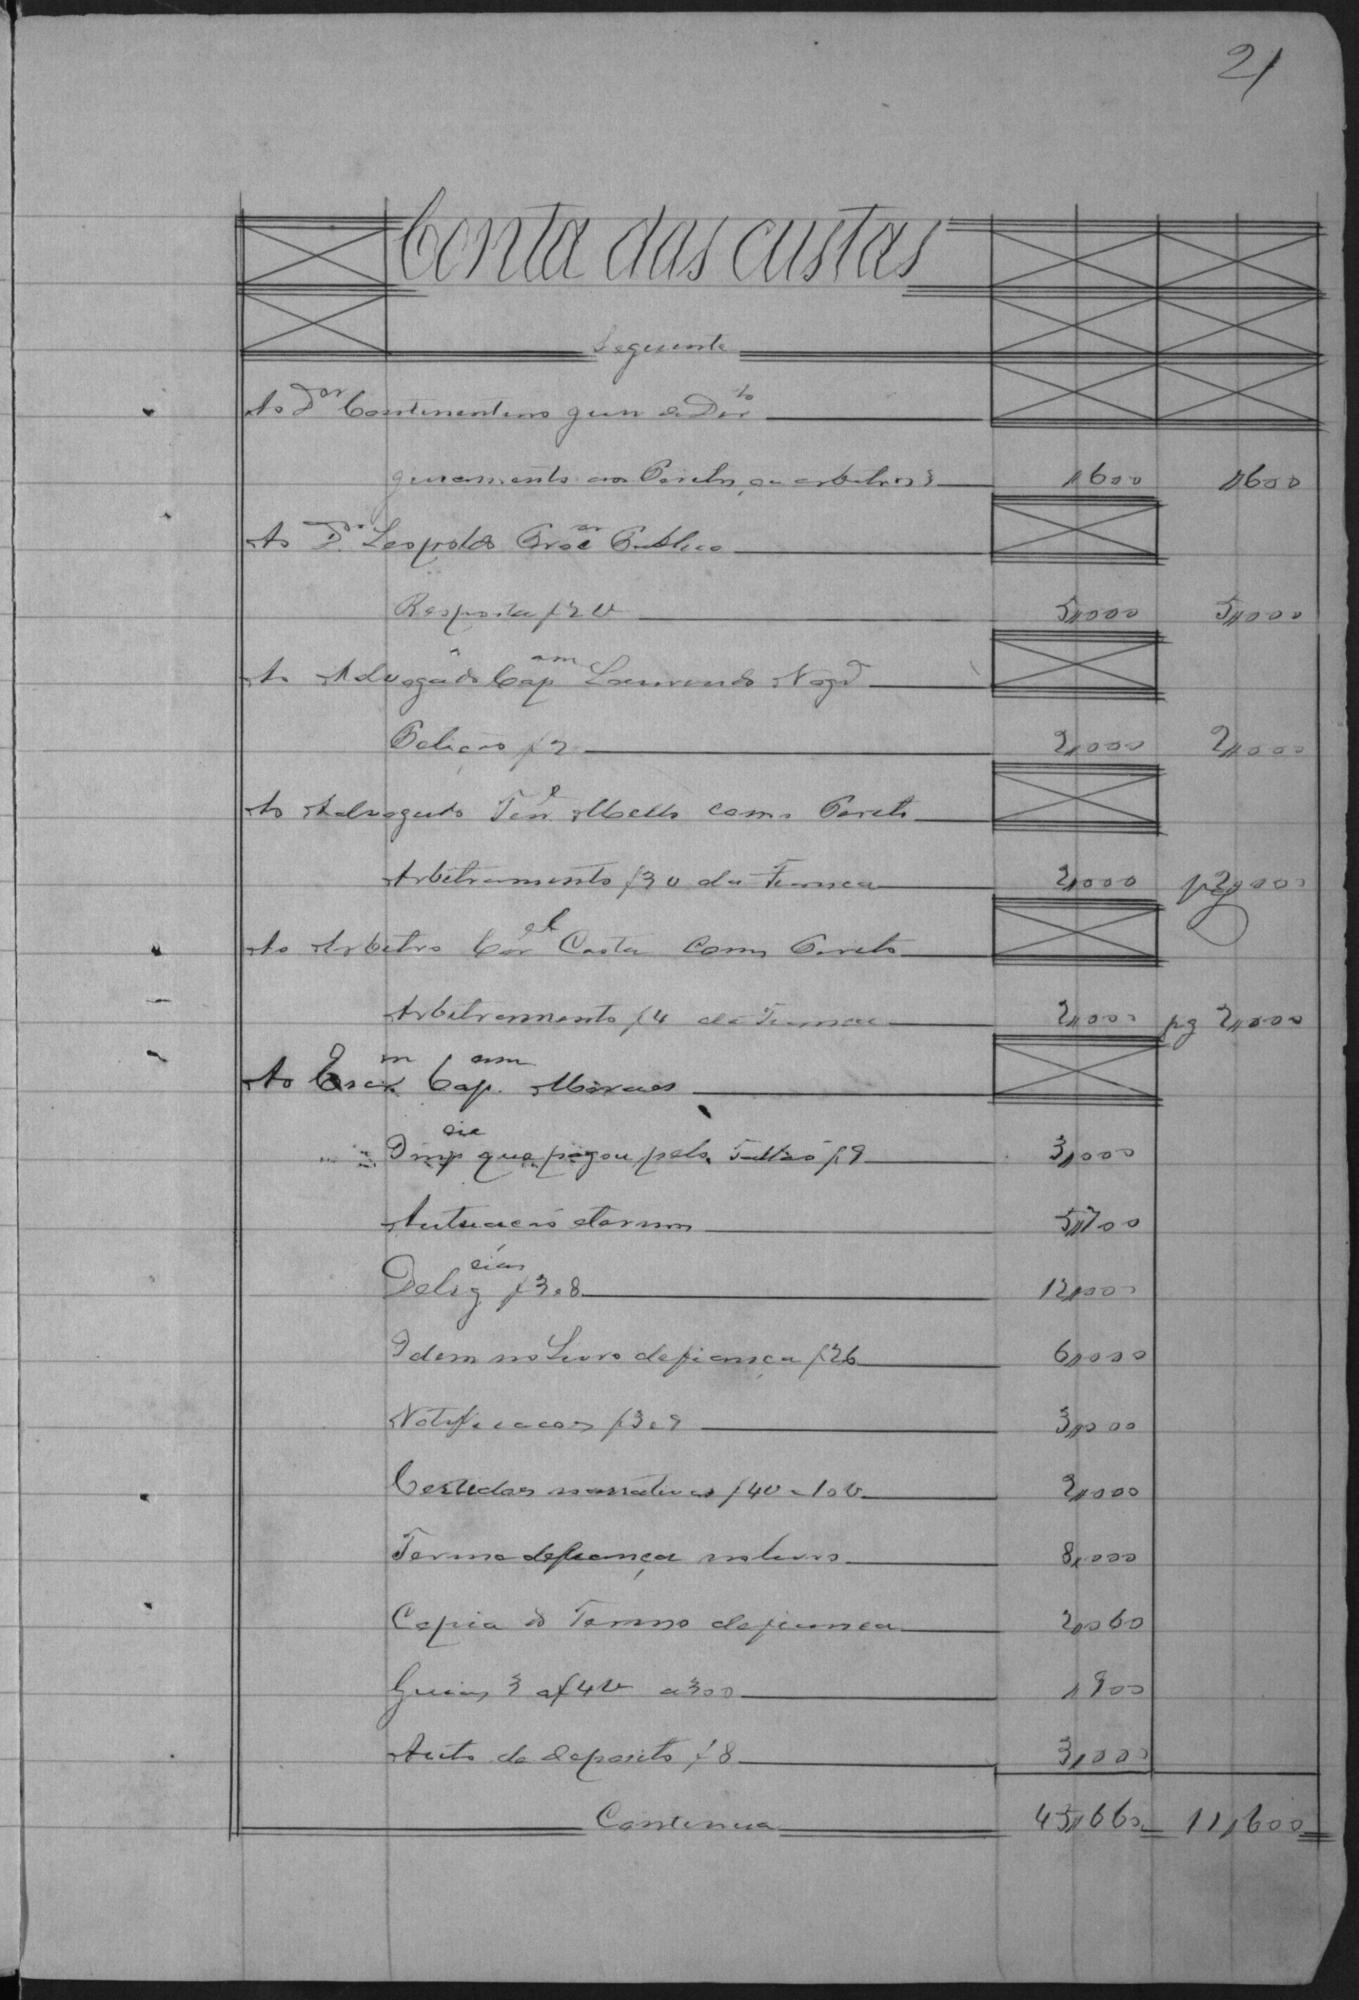 21
Conta das custas
Seguinte
Ao Dor Continentino juiz de Dirto
juramento aos Peritos, ou arbitros 1600 1600
Ao Dr. Leopoldo Public
Resposta f 2 v 5,,000 5,,000
Ao Advogado Capam Lourenço Nogra
Petição f 2 2,000 2,,000
Ao Advogado Tene Mello como Perito
Arbitramento f 3 v da Fiança 2,000 pg 2,000
Ao Arbitro Corel Costa como Perito
Arbitramento f 4 da Fiança 2,,000 pg 2,,000
Ao Escrm Capam. Moraes
que pagou pelo Talão f 9 3,000
Autuação etermos 5,,700
Deligcias f 3 e 8 12,000
Idem no Livro de fiança f 26 6,000
Notificacoes f 3 e 9 3,,000
Certidões narrativas f 4v e 10 v 2,000
Termo de fiança no livro 8,000
Copia do Termo de fiança 2,,060
Guias 3 af 4 v a 300 ,900
Auto de deposito f 8 3,000
Continua 45,,660 11,600